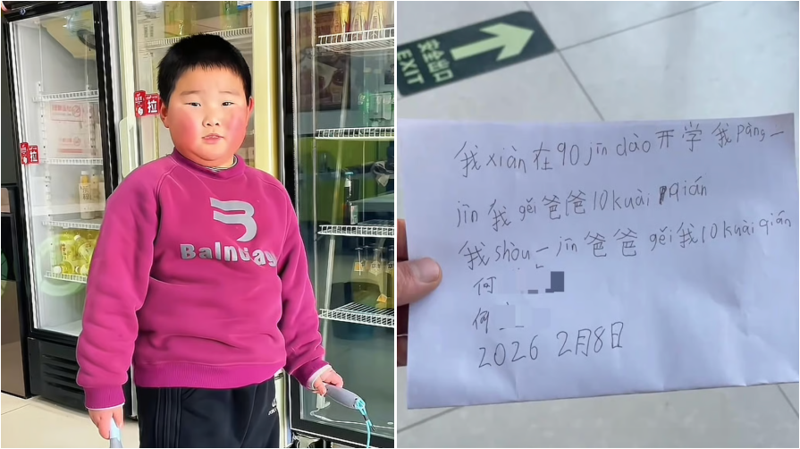 拉
拉
Balnuay
安全出口
EXIT
我xiàn在90jīn dào开学 我pàng一
jīn 我gěi爸爸10kuài qián
我shòu一jīn爸爸gěi我10kuài qián
何
何
2026 2月8日